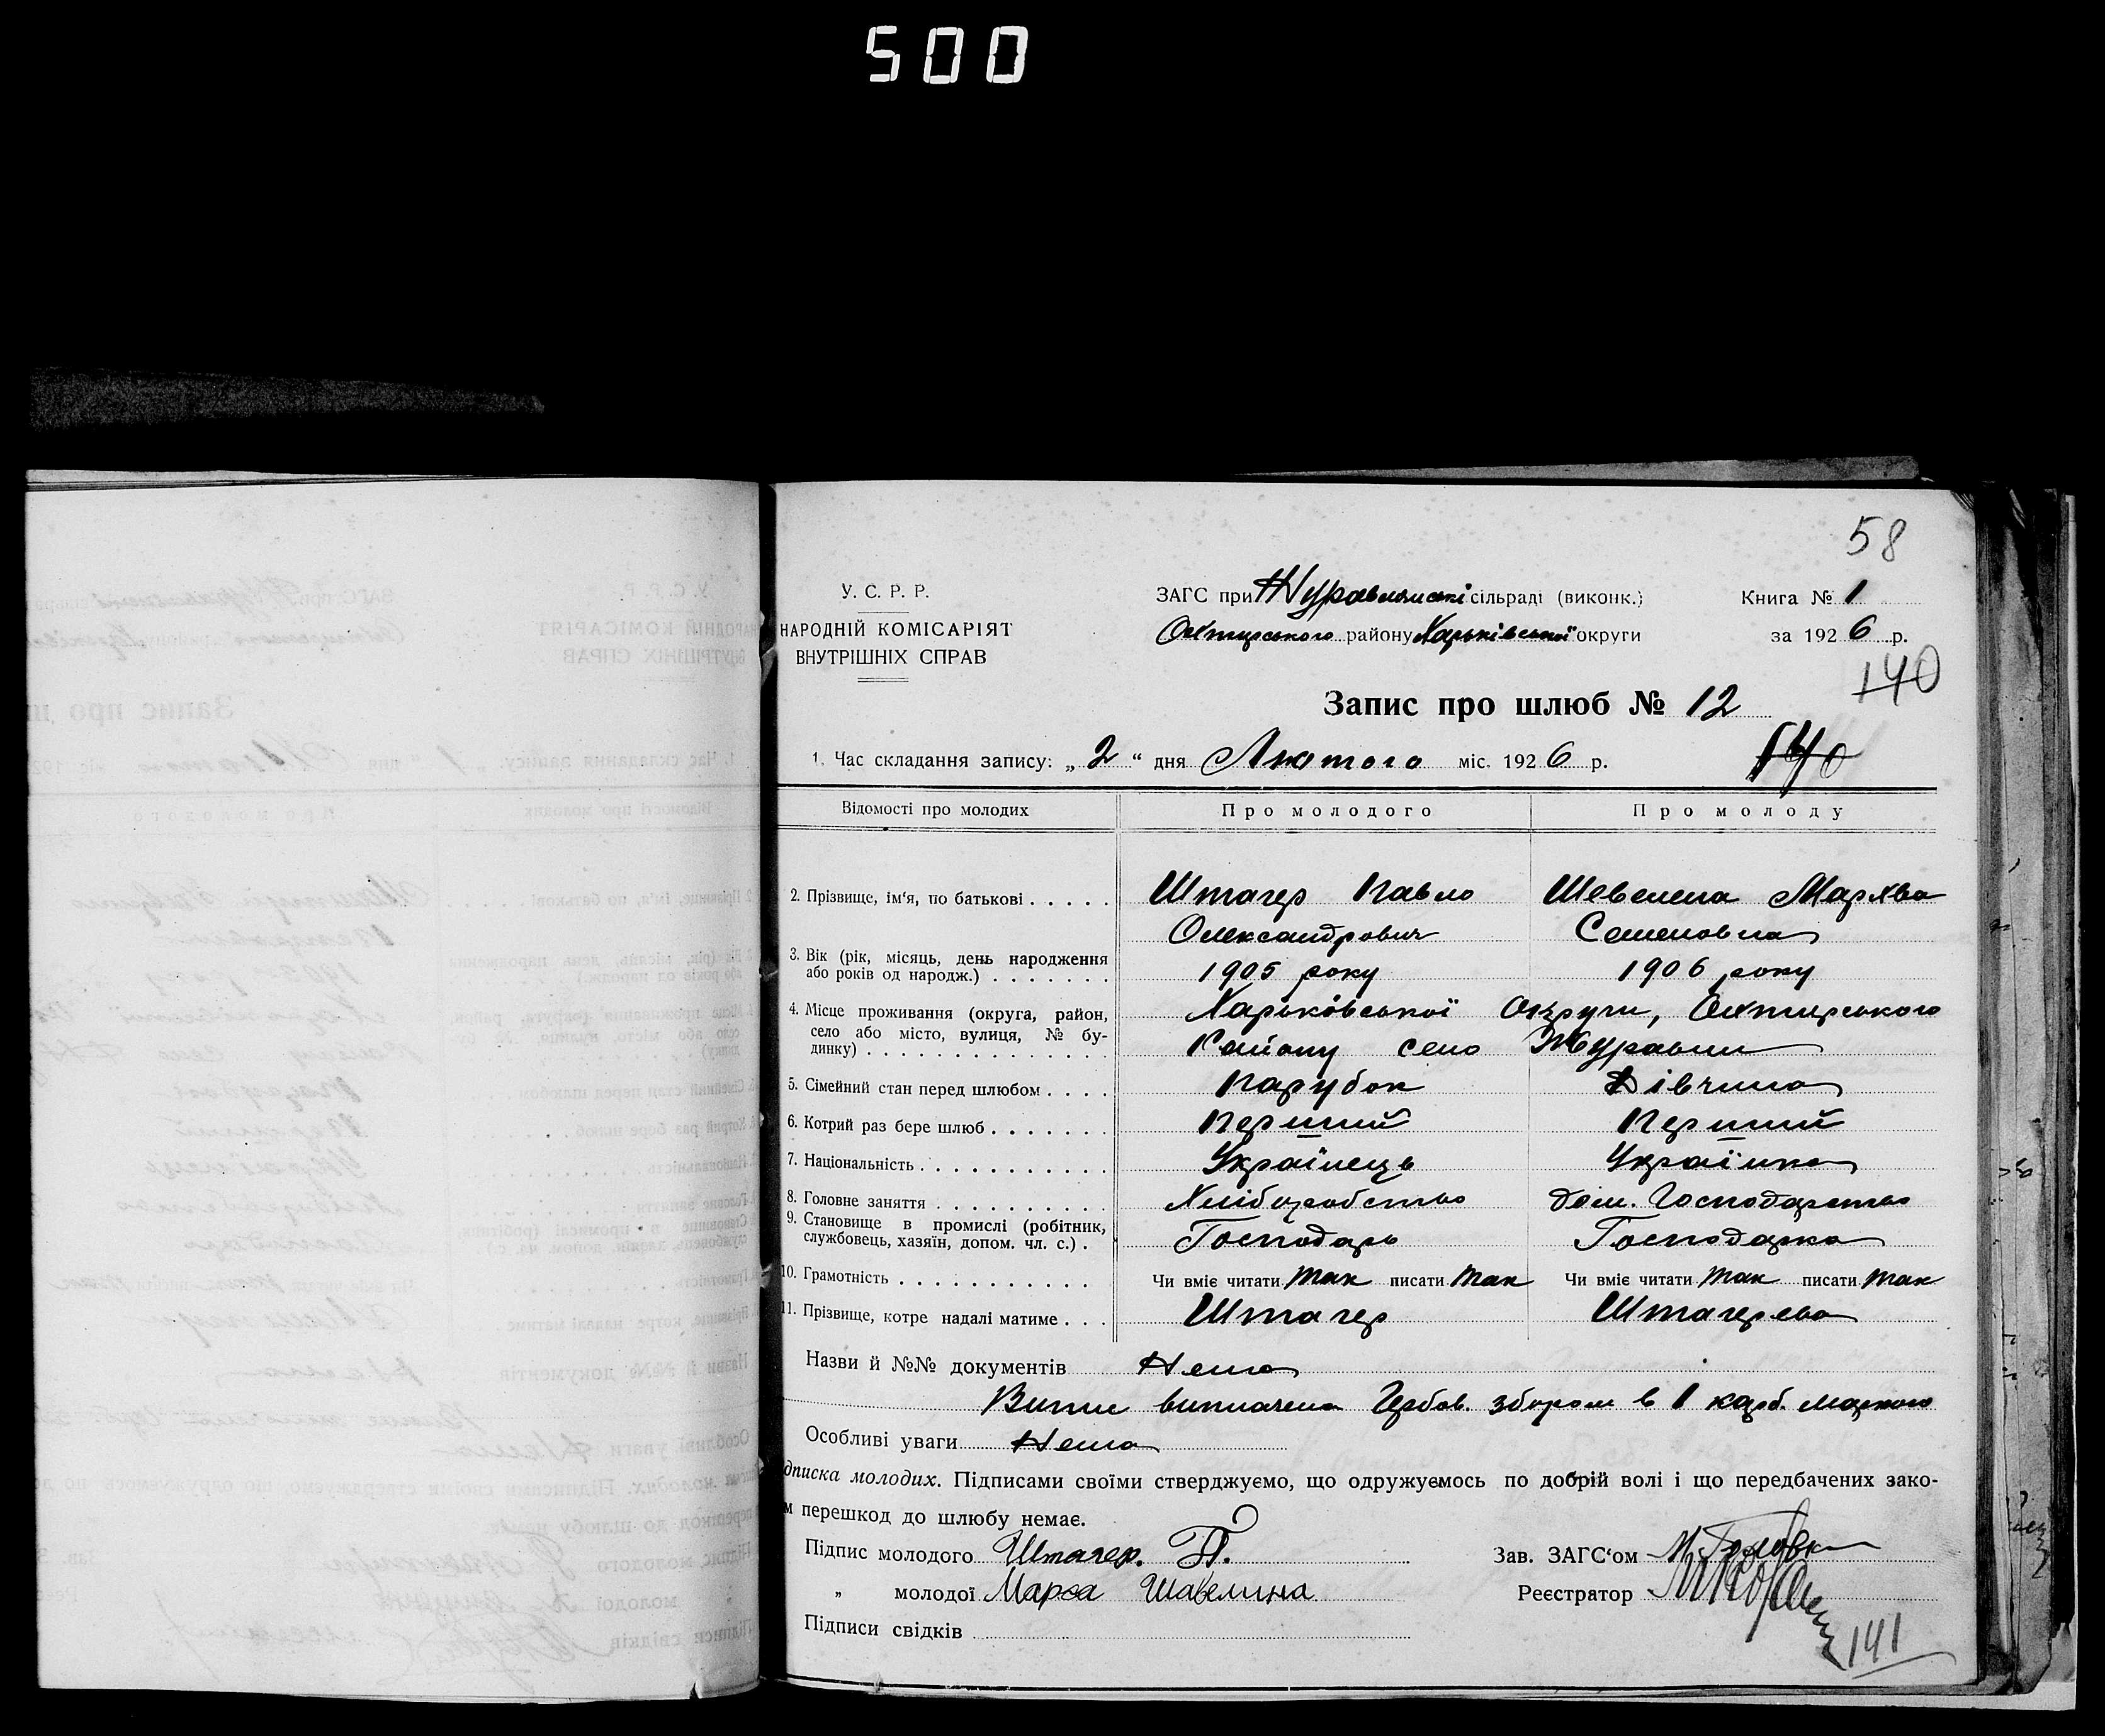 500
58
У. С. Р. Р.
НАРОДНІЙ КОМІСАРІЯТ
ВНУТРІШНІХ СПРАВ
ЗАГС при Журавлянські сільраді (виконк.)
Охтирського району Харьківської округи
Книга № 1
за 1926 р.
140
Запис про шлюб № 12
1. Час складання запису: „2“ дня Лютого міс. 1926 р.
140
Відомості про молодих Про молодого Про молоду
2. Прізвище, ім‘я, по батькові . . . . . Штагер Павло Шевелева Мархва
Олександрович Семеновна
3. Вік (рік, місяць, день народження
або років од народж.) . . . . . . . 1905 року 1906 року
4. Місце проживання (округа, район,
село або місто, вулиця, № бу-
динку) . . . . . . . . . . . . . .
Харьківської Округи, Охтирського
Району село Журавни
5. Сімейний стан перед шлюбом . . . . Парубок Дівчина
6. Котрий раз бере шлюб . . . . . . . Перший Перший
7. Національність . . . . . . . . . . . Українець Українка
8. Головне заняття . . . . . . . . . . Хліборобство дом. Господарство
9. Становище в промислі (робітник,
службовець, хазяїн, допом. чл. с.) . Господарь Господарка
10. Грамотність . . . . . . . . . . . Чи вміє читати так писати так Чи вміє читати так писати так
11. Прізвище, котре надалі матиме . . . Штагер Штагерева
Назви й №№ документів Нема
Випис виплачена Гербов. збором в 1 карб. маркою
Особливі уваги Нема
дписка молодих. Підписами своїми стверджуємо, що одружуємось по добрій волі і що передбачених зако-
м перешкод до шлюбу немає.
Підпис молодого Штагер. П. Зав. ЗАГС‘ом
„ молодої Марва Шавелина Реєстратор
Підписи свідків
141